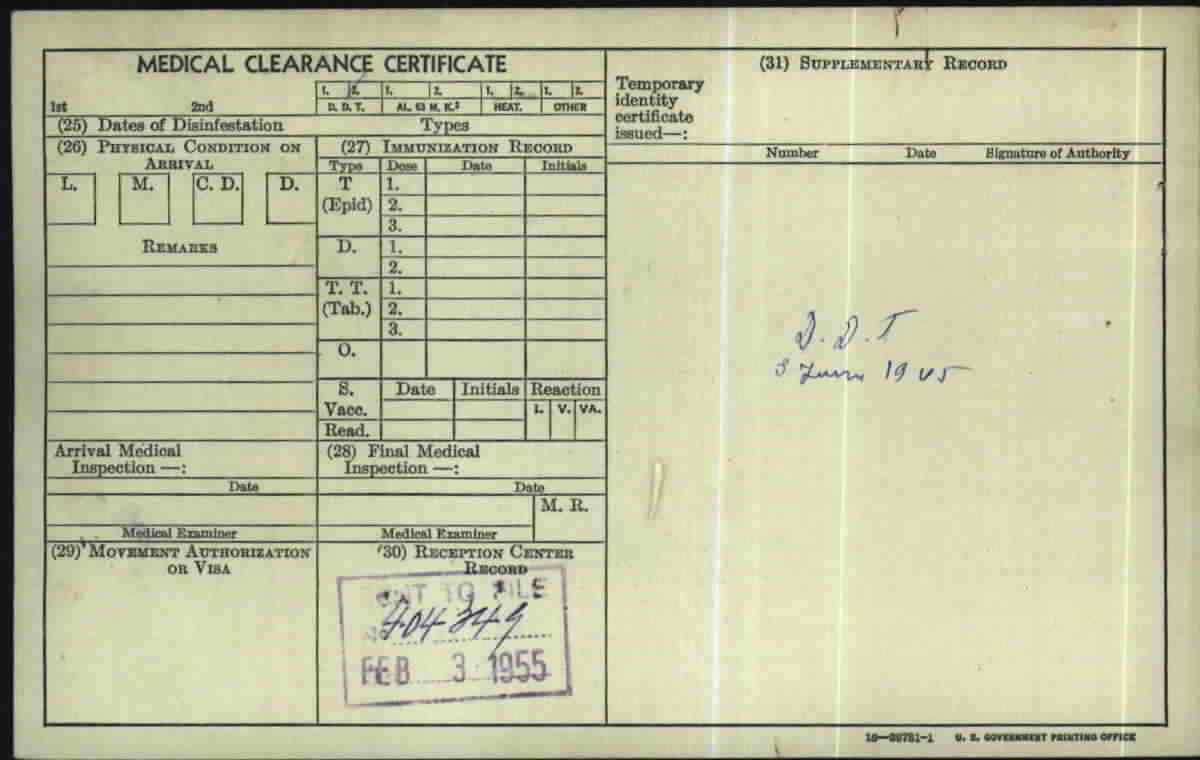 MEDICAL CLEARANCE CERTIFICATE
1. 2. 1. 2. 1. 2. 1. 2.
1st 2nd D. D. T. HEAT. OTHER
(25) Dates of Disinfestation Types
(26) PHYSICAL CONDITION ON
ARRIVAL
L. M. C. D. D.
REMARKS
(27) IMMUNIZATION RECORD
Type Dose Date Initials
T 1.
(Epid) 2.
3.
D. 1.
2.
T. T. 1.
(Tab.) 2.
3.
O.
S. Date Initials Reaction
Vacc. I. V. VA.
Read.
Arrival Medical
Inspection —:
Date
Medical Examiner
(28) Final Medical
Inspection —:
Date
M. R.
Medical Examiner
(29) MOVEMENT AUTHORIZATION
OR VISA
(30) RECEPTION CENTER
RECORD
TO FILE
404349
FEB 3 1955
(31) SUPPLEMENTARY RECORD
Temporary
identity
certificate
issued—:
Number Date Signature of Authority
D. D. T
1945
U. S. GOVERNMENT PRINTING OFFICE